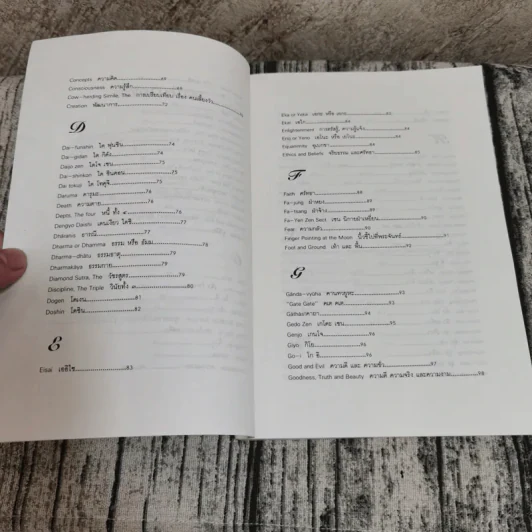 Concepts ความคิด....................69
Consciousness ความรู้สึก....................69
Cow-herding Simile, The การเปรียบเทียบ เรื่อง คนเลี้ยงวัว
Creation พัฒนาการ....................73
D
Dai-funshin ได ฟุนชิน....................74
Dai-gidan ได กิดัง....................74
Daijo zen ไดโจ เซน....................75
Dai-shinkon ได ชินคอน....................75
Dai tokuji ได โทคุจิ....................75
Daruma ดารุมะ....................76
Death ความตาย....................76
Depts, The four หนี้ ทั้ง ๔....................76
Dengyo Daishi เดนเงียว ไดชิ....................77
Dhāranis ธารณี....................77
Dharma or Dhamma ธรรม หรือ ธัมม....................78
Dharma-dhātu ธรรมธาตุ....................79
Dharmakāya ธรรมกาย....................79
Diamond Sutra, The วัชรสูตร....................79
Discipline, The Triple วินัยทั้ง ๓....................80
Dogen โดเงน....................81
Doshin โดชิน....................82
E
Eisai เออิไซ....................83
Eka เอกะ
Enlightenment การตรัสรู้, ความรู้แจ้ง
Equanimity อุเบกขา
Ethics and Beliefs จริยธรรม และศรัทธา
F
Faith ศรัทธา
Fa-jung ฝาหยง
Fa-tsang ฝาจ้าง
Fa-Yen Zen Sect เซน นิกายฝาเหยียน
Fear ความกลัว
Finger Pointing at the Moon นิ้วชี้ไปที่พระจันทร์
Foot and Ground เท้า และ พื้น
G
Ganda-vyūha คานทวยูหะ....................93
"Gate Gate" คเต คเต....................93
Gedo Zen เกโดะ เซน....................95
Genjo เกนโจ....................96
Giyo กิโย....................96
Go-i โก อิ....................96
Good and Evil ความดี และ ความชั่ว....................97
Goodness, Truth and Beauty ความดี ความจริง และความงาม....................98